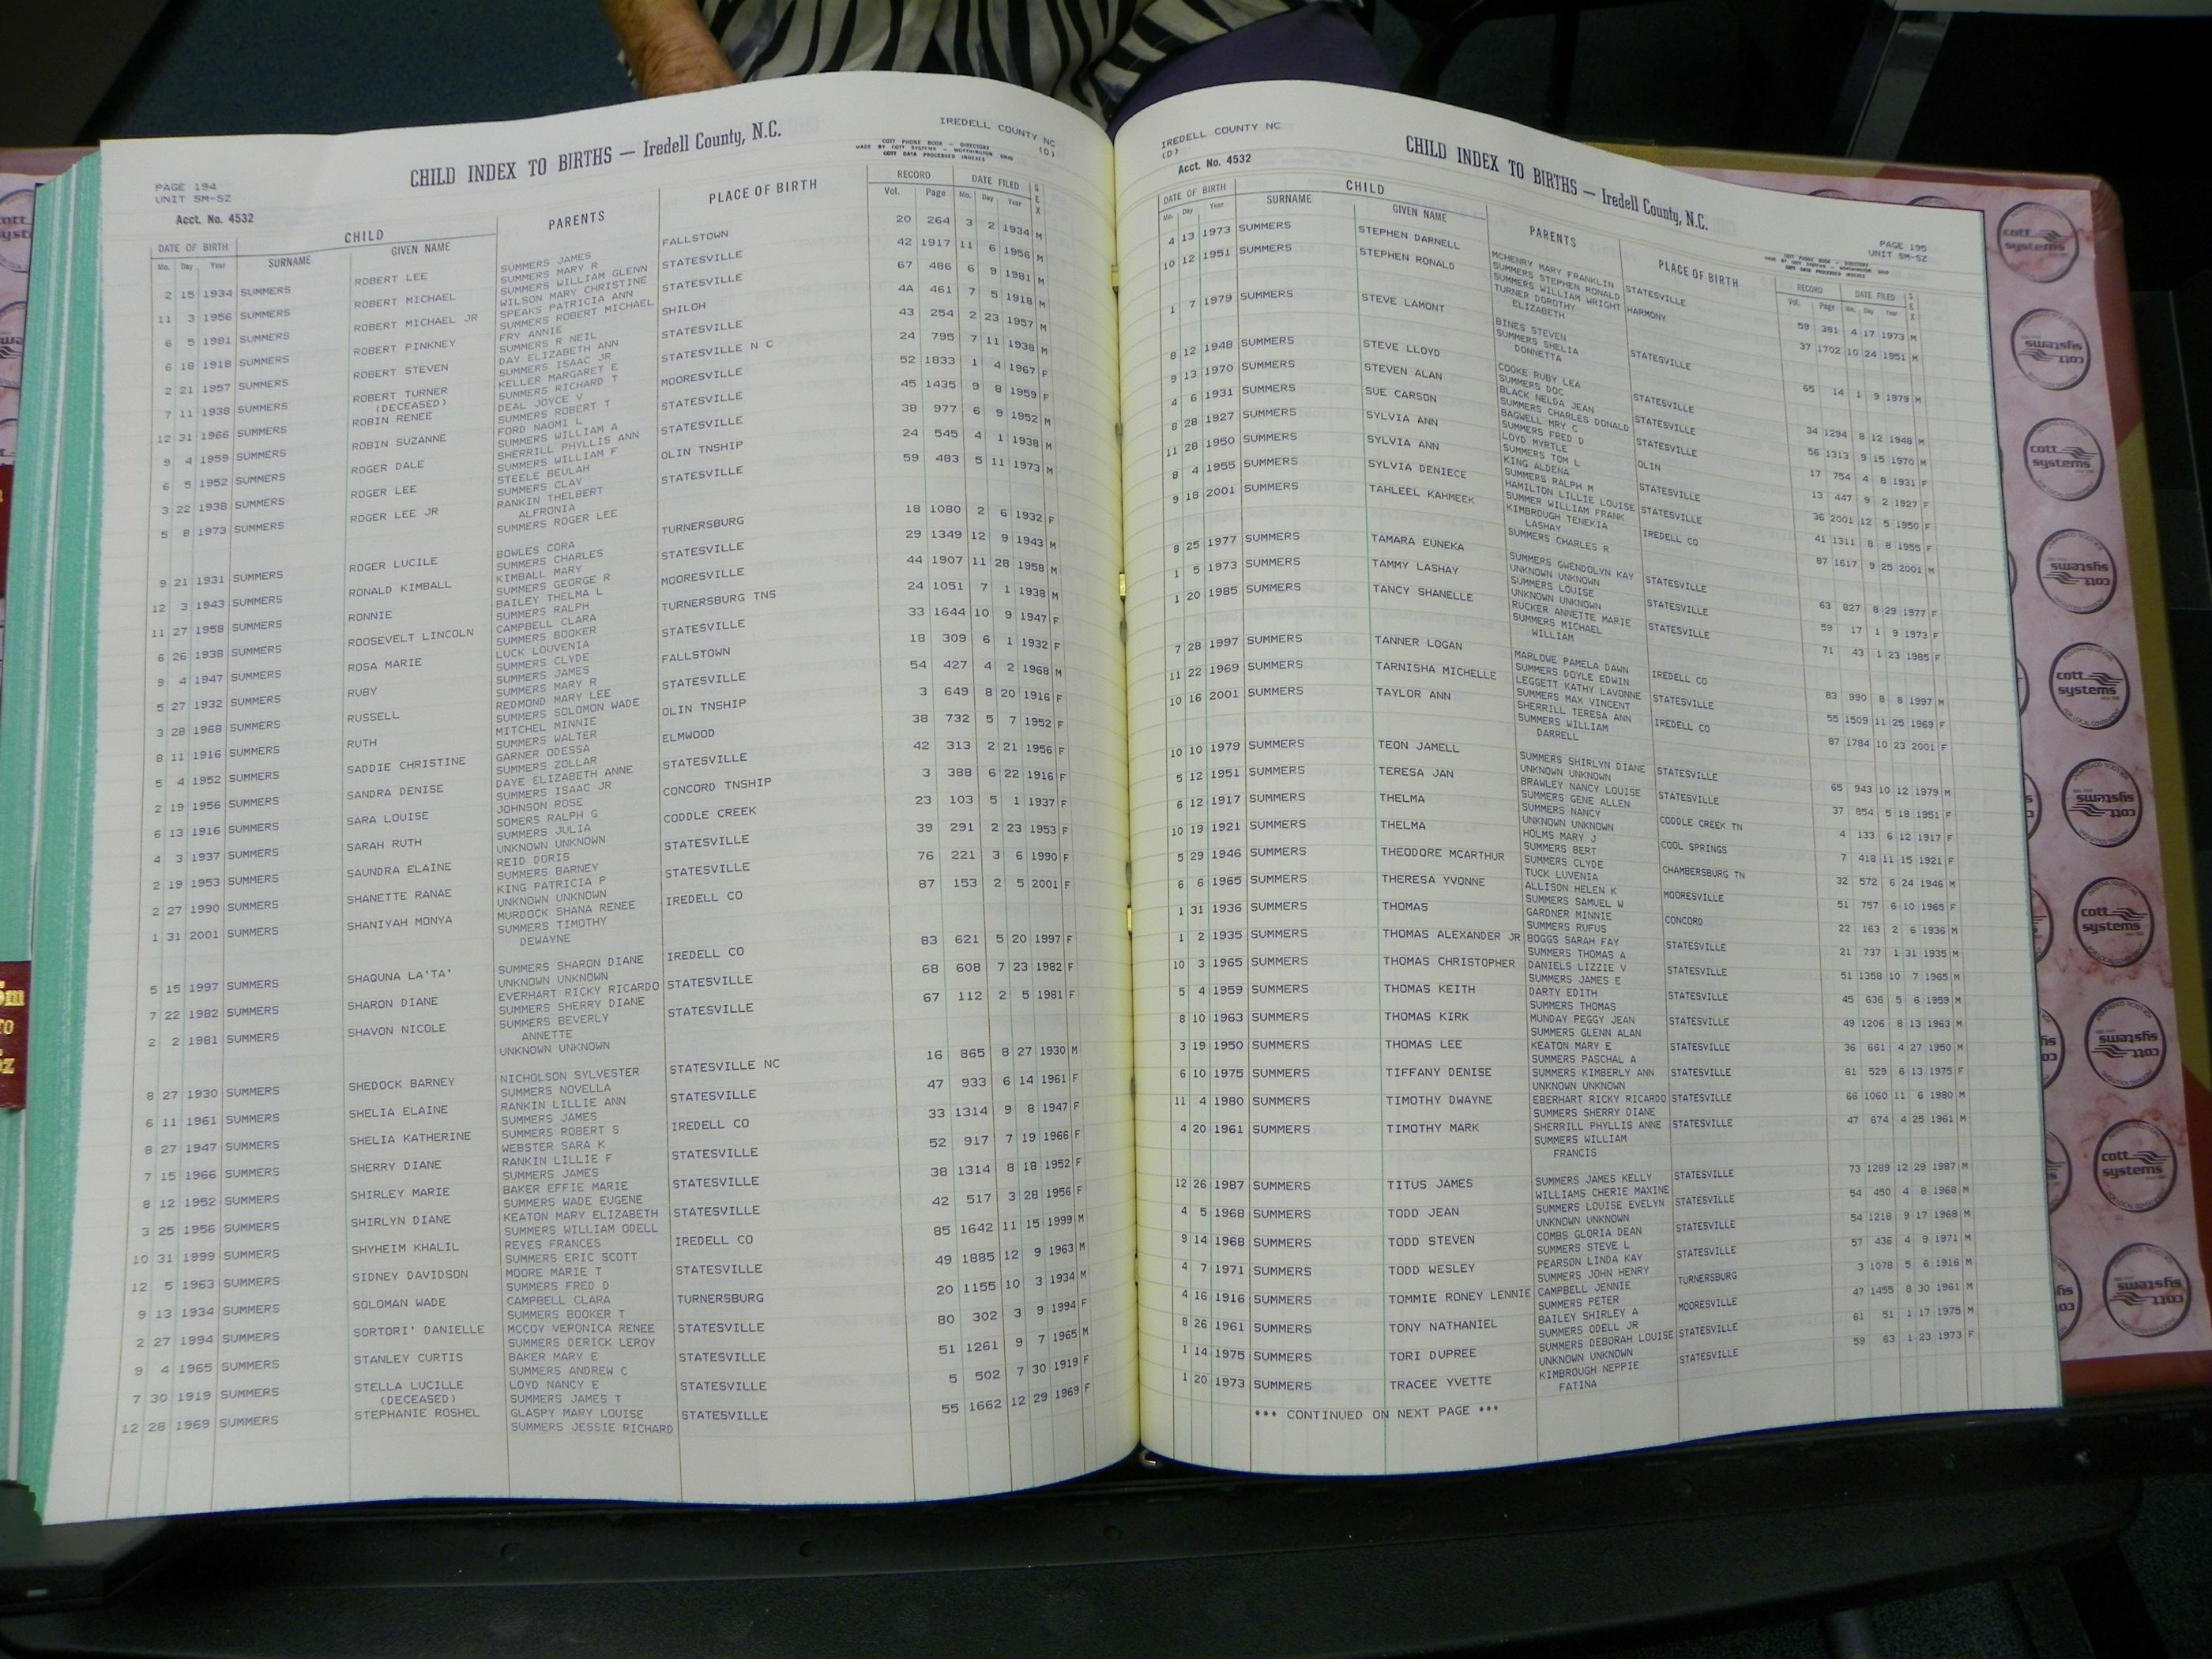 IREDELL COUNTY NC
(D)
CHILD INDEX TO BIRTHS — Iredell County, N.C.
COTT PHONE BOOK — DIRECTORY
MADE BY COTT SYSTEMS — WORTHINGTON OHIO
COTT DATA PROCESSED INDEXES
PAGE 194
UNIT SM-SZ
Acct. No. 4532
DATE OF BIRTH CHILD PARENTS PLACE OF BIRTH RECORD DATE FILED SEX
Mo. Day Year SURNAME GIVEN NAME Vol. Page Mo. Day Year
2 15 1934 SUMMERS ROBERT LEE SUMMERS JAMES FALLSTOWN 20 264 3 2 1934 M
SUMMERS MARY R
11 3 1956 SUMMERS ROBERT MICHAEL SUMMERS WILLIAM GLENN STATESVILLE 42 1917 11 6 1956 M
WILSON MARY CHRISTINE
6 5 1981 SUMMERS ROBERT MICHAEL JR SPEAKS PATRICIA ANN STATESVILLE 67 486 6 9 1981 M
SUMMERS ROBERT MICHAEL
6 18 1918 SUMMERS ROBERT PINKNEY FRY ANNIE SHILOH 4A 461 7 5 1918 M
SUMMERS R NEIL
2 21 1957 SUMMERS ROBERT STEVEN DAY ELIZABETH ANN STATESVILLE 43 254 2 23 1957 M
SUMMERS ISAAC JR
7 11 1938 SUMMERS ROBERT TURNER KELLER MARGARET E STATESVILLE N C 24 795 7 11 1938 M
(DECEASED) SUMMERS RICHARD T
12 31 1966 SUMMERS ROBIN RENEE DEAL JOYCE V MOORESVILLE 52 1833 1 4 1967 F
SUMMERS ROBERT T
9 4 1959 SUMMERS ROBIN SUZANNE FORD NAOMI L STATESVILLE 45 1435 9 8 1959 F
SUMMERS WILLIAM A
6 5 1952 SUMMERS ROGER DALE SHERRILL PHYLLIS ANN STATESVILLE 38 977 6 9 1952 M
SUMMERS WILLIAM F
3 22 1938 SUMMERS ROGER LEE STEELE BEULAH OLIN TNSHIP 24 545 4 1 1938 M
SUMMERS CLAY
5 8 1973 SUMMERS ROGER LEE JR RANKIN THELBERT STATESVILLE 59 483 5 11 1973 M
ALFRONIA
SUMMERS ROGER LEE
9 21 1931 SUMMERS ROGER LUCILE BOWLES CORA TURNERSBURG 18 1080 2 6 1932 F
SUMMERS CHARLES
12 3 1943 SUMMERS RONALD KIMBALL KIMBALL MARY STATESVILLE 29 1349 12 9 1943 M
SUMMERS GEORGE R
11 27 1958 SUMMERS RONNIE BAILEY THELMA L MOORESVILLE 44 1907 11 28 1958 M
SUMMERS RALPH
6 26 1938 SUMMERS ROOSEVELT LINCOLN CAMPBELL CLARA TURNERSBURG TNS 24 1051 7 1 1938 M
SUMMERS BOOKER
9 4 1947 SUMMERS ROSA MARIE LUCK LOUVENIA STATESVILLE 33 1644 10 9 1947 F
SUMMERS CLYDE
5 27 1932 SUMMERS RUBY SUMMERS JAMES FALLSTOWN 18 309 6 1 1932 F
SUMMERS MARY R
3 28 1968 SUMMERS RUSSELL REDMOND MARY LEE STATESVILLE 54 427 4 2 1968 M
SUMMERS SOLOMON WADE
8 11 1916 SUMMERS RUTH MITCHEL MINNIE OLIN TNSHIP 3 649 8 20 1916 F
SUMMERS WALTER
5 4 1952 SUMMERS SADDIE CHRISTINE GARNER ODESSA ELMWOOD 38 732 5 7 1952 F
SUMMERS ZOLLAR
2 19 1956 SUMMERS SANDRA DENISE DAYE ELIZABETH ANNE STATESVILLE 42 313 2 21 1956 F
SUMMERS ISAAC JR
6 13 1916 SUMMERS SARA LOUISE JOHNSON ROSE CONCORD TNSHIP 3 388 6 22 1916 F
SOMERS RALPH G
4 3 1937 SUMMERS SARAH RUTH SUMMERS JULIA CODDLE CREEK 23 103 5 1 1937 F
UNKNOWN UNKNOWN
2 19 1953 SUMMERS SAUNDRA ELAINE REID DORIS STATESVILLE 39 291 2 23 1953 F
SUMMERS BARNEY
2 27 1990 SUMMERS SHANETTE RANAE KING PATRICIA P STATESVILLE 76 221 3 6 1990 F
UNKNOWN UNKNOWN
1 31 2001 SUMMERS SHANIYAH MONYA MURDOCK SHANA RENEE IREDELL CO 87 153 2 5 2001 F
SUMMERS TIMOTHY
DEWAYNE
5 15 1997 SUMMERS SHAQUNA LA'TA' SUMMERS SHARON DIANE IREDELL CO 83 621 5 20 1997 F
UNKNOWN UNKNOWN
7 22 1982 SUMMERS SHARON DIANE EVERHART RICKY RICARDO STATESVILLE 68 608 7 23 1982 F
SUMMERS SHERRY DIANE
2 2 1981 SUMMERS SHAVON NICOLE SUMMERS BEVERLY STATESVILLE 67 112 2 5 1981 F
ANNETTE
UNKNOWN UNKNOWN
8 27 1930 SUMMERS SHEDOCK BARNEY NICHOLSON SYLVESTER STATESVILLE NC 16 865 8 27 1930 M
SUMMERS NOVELLA
6 11 1961 SUMMERS SHELIA ELAINE RANKIN LILLIE ANN STATESVILLE 47 933 6 14 1961 F
SUMMERS JAMES
8 27 1947 SUMMERS SHELIA KATHERINE SUMMERS ROBERT S IREDELL CO 33 1314 9 8 1947 F
WEBSTER SARA K
7 15 1966 SUMMERS SHERRY DIANE RANKIN LILLIE F STATESVILLE 52 917 7 19 1966 F
SUMMERS JAMES
8 12 1952 SUMMERS SHIRLEY MARIE BAKER EFFIE MARIE STATESVILLE 38 1314 8 18 1952 F
SUMMERS WADE EUGENE
3 25 1956 SUMMERS SHIRLYN DIANE KEATON MARY ELIZABETH STATESVILLE 42 517 3 28 1956 F
SUMMERS WILLIAM ODELL
10 31 1999 SUMMERS SHYHEIM KHALIL REYES FRANCES IREDELL CO 85 1642 11 15 1999 M
SUMMERS ERIC SCOTT
12 5 1963 SUMMERS SIDNEY DAVIDSON MOORE MARIE T STATESVILLE 49 1885 12 9 1963 M
SUMMERS FRED D
9 13 1934 SUMMERS SOLOMAN WADE CAMPBELL CLARA TURNERSBURG 20 1155 10 3 1934 M
SUMMERS BOOKER T
2 27 1994 SUMMERS SORTORI' DANIELLE MCCOY VERONICA RENEE STATESVILLE 80 302 3 9 1994 F
SUMMERS DERICK LEROY
9 4 1965 SUMMERS STANLEY CURTIS BAKER MARY E STATESVILLE 51 1261 9 7 1965 M
SUMMERS ANDREW C
7 30 1919 SUMMERS STELLA LUCILLE LOYD NANCY E STATESVILLE 5 502 7 30 1919 F
(DECEASED) SUMMERS JAMES T
12 28 1969 SUMMERS STEPHANIE ROSHEL GLASPY MARY LOUISE STATESVILLE 55 1662 12 29 1969 F
SUMMERS JESSIE RICHARD
IREDELL COUNTY NC
(D)
Acct. No. 4532
CHILD INDEX TO BIRTHS — Iredell County, N.C.
PAGE 195
UNIT SM-SZ
DATE OF BIRTH CHILD PARENTS PLACE OF BIRTH RECORD DATE FILED SEX
Mo. Day Year SURNAME GIVEN NAME Vol. Page Mo. Day Year
4 13 1973 SUMMERS STEPHEN DARNELL MCHENRY MARY FRANKLIN STATESVILLE 59 381 4 17 1973 M
SUMMERS STEPHEN RONALD
10 12 1951 SUMMERS STEPHEN RONALD SUMMERS WILLIAM WRIGHT HARMONY 37 1702 10 24 1951 M
TURNER DOROTHY
ELIZABETH
1 7 1979 SUMMERS STEVE LAMONT BINES STEVEN STATESVILLE 65 14 1 9 1979 M
SUMMERS SHELIA
DONNETTA
8 12 1948 SUMMERS STEVE LLOYD COOKE RUBY LEA STATESVILLE 34 1294 8 12 1948 M
SUMMERS DOC
9 13 1970 SUMMERS STEVEN ALAN BLACK NELDA JEAN STATESVILLE 56 1313 9 15 1970 M
SUMMERS CHARLES DONALD
4 6 1931 SUMMERS SUE CARSON BAGWELL MRY C STATESVILLE 17 754 4 8 1931 F
SUMMERS FRED D
8 28 1927 SUMMERS SYLVIA ANN LOYD MYRTLE OLIN 13 447 9 2 1927 F
SUMMERS TOM L
11 28 1950 SUMMERS SYLVIA ANN KING ALDENA STATESVILLE 36 2001 12 5 1950 F
SUMMERS RALPH M
8 4 1955 SUMMERS SYLVIA DENIECE HAMILTON LILLIE LOUISE STATESVILLE 41 1311 8 8 1955 F
SUMMER WILLIAM FRANK
9 18 2001 SUMMERS TAHLEEL KAHMEEK KIMBROUGH TENEKIA IREDELL CO 87 1617 9 25 2001 M
LASHAY
SUMMERS CHARLES R
8 25 1977 SUMMERS TAMARA EUNEKA SUMMERS GWENDOLYN KAY STATESVILLE 63 827 8 29 1977 F
UNKNOWN UNKNOWN
1 5 1973 SUMMERS TAMMY LASHAY SUMMERS LOUISE STATESVILLE 59 17 1 9 1973 F
UNKNOWN UNKNOWN
1 20 1985 SUMMERS TANCY SHANELLE RUCKER ANNETTE MARIE STATESVILLE 71 43 1 23 1985 F
SUMMERS MICHAEL
WILLIAM
7 28 1997 SUMMERS TANNER LOGAN MARLOWE PAMELA DAWN IREDELL CO 83 990 8 8 1997 M
SUMMERS DOYLE EDWIN
11 22 1969 SUMMERS TARNISHA MICHELLE LEGGETT KATHY LAVONNE STATESVILLE 55 1509 11 25 1969 F
SUMMERS MAX VINCENT
10 16 2001 SUMMERS TAYLOR ANN SHERRILL TERESA ANN IREDELL CO 87 1784 10 23 2001 F
SUMMERS WILLIAM
DARRELL
10 10 1979 SUMMERS TEON JAMELL SUMMERS SHIRLYN DIANE STATESVILLE 65 943 10 12 1979 M
UNKNOWN UNKNOWN
5 12 1951 SUMMERS TERESA JAN BRAWLEY NANCY LOUISE STATESVILLE 37 854 5 18 1951 F
SUMMERS GENE ALLEN
6 12 1917 SUMMERS THELMA SUMMERS NANCY CODDLE CREEK TN 4 133 6 12 1917 F
UNKNOWN UNKNOWN
10 19 1921 SUMMERS THELMA HOLMS MARY J COOL SPRINGS 7 418 11 15 1921 F
SUMMERS BERT
5 29 1946 SUMMERS THEODORE MCARTHUR SUMMERS CLYDE CHAMBERSBURG TN 32 572 6 24 1946 M
TUCK LUVENIA
6 6 1965 SUMMERS THERESA YVONNE ALLISON HELEN K MOORESVILLE 51 757 6 10 1965 F
SUMMERS SAMUEL W
1 31 1936 SUMMERS THOMAS GARDNER MINNIE CONCORD 22 163 2 6 1936 M
SUMMERS RUFUS
1 2 1935 SUMMERS THOMAS ALEXANDER JR BOGGS SARAH FAY STATESVILLE 21 737 1 31 1935 M
SUMMERS THOMAS A
10 3 1965 SUMMERS THOMAS CHRISTOPHER DANIELS LIZZIE V STATESVILLE 51 1358 10 7 1965 M
SUMMERS JAMES E
5 4 1959 SUMMERS THOMAS KEITH DARTY EDITH STATESVILLE 45 636 5 6 1959 M
SUMMERS THOMAS
8 10 1963 SUMMERS THOMAS KIRK MUNDAY PEGGY JEAN STATESVILLE 49 1206 8 13 1963 M
SUMMERS GLENN ALAN
3 19 1950 SUMMERS THOMAS LEE KEATON MARY E STATESVILLE 36 661 4 27 1950 M
SUMMERS PASCHAL A
6 10 1975 SUMMERS TIFFANY DENISE SUMMERS KIMBERLY ANN STATESVILLE 61 529 6 13 1975 F
UNKNOWN UNKNOWN
11 4 1980 SUMMERS TIMOTHY DWAYNE EBERHART RICKY RICARDO STATESVILLE 66 1060 11 6 1980 M
SUMMERS SHERRY DIANE
4 20 1961 SUMMERS TIMOTHY MARK SHERRILL PHYLLIS ANNE STATESVILLE 47 674 4 25 1961 M
SUMMERS WILLIAM
FRANCIS
12 26 1987 SUMMERS TITUS JAMES SUMMERS JAMES KELLY STATESVILLE 73 1289 12 29 1987 M
WILLIAMS CHERIE MAXINE
4 5 1968 SUMMERS TODD JEAN SUMMERS LOUISE EVELYN STATESVILLE 54 450 4 8 1968 M
UNKNOWN UNKNOWN
9 14 1968 SUMMERS TODD STEVEN COMBS GLORIA DEAN STATESVILLE 54 1218 9 17 1968 M
SUMMERS STEVE L
4 7 1971 SUMMERS TODD WESLEY PEARSON LINDA KAY STATESVILLE 57 436 4 9 1971 M
SUMMERS JOHN HENRY
4 16 1916 SUMMERS TOMMIE RONEY LENNIE CAMPBELL JENNIE TURNERSBURG 3 1078 5 6 1916 M
SUMMERS PETER
8 26 1961 SUMMERS TONY NATHANIEL BAILEY SHIRLEY A MOORESVILLE 47 1455 8 30 1961 M
SUMMERS ODELL JR
1 14 1975 SUMMERS TORI DUPREE SUMMERS DEBORAH LOUISE STATESVILLE 61 51 1 17 1975 M
UNKNOWN UNKNOWN
1 20 1973 SUMMERS TRACEE YVETTE KIMBROUGH NEPPIE STATESVILLE 59 63 1 23 1973 F
FATINA
*** CONTINUED ON NEXT PAGE ***
cott systems